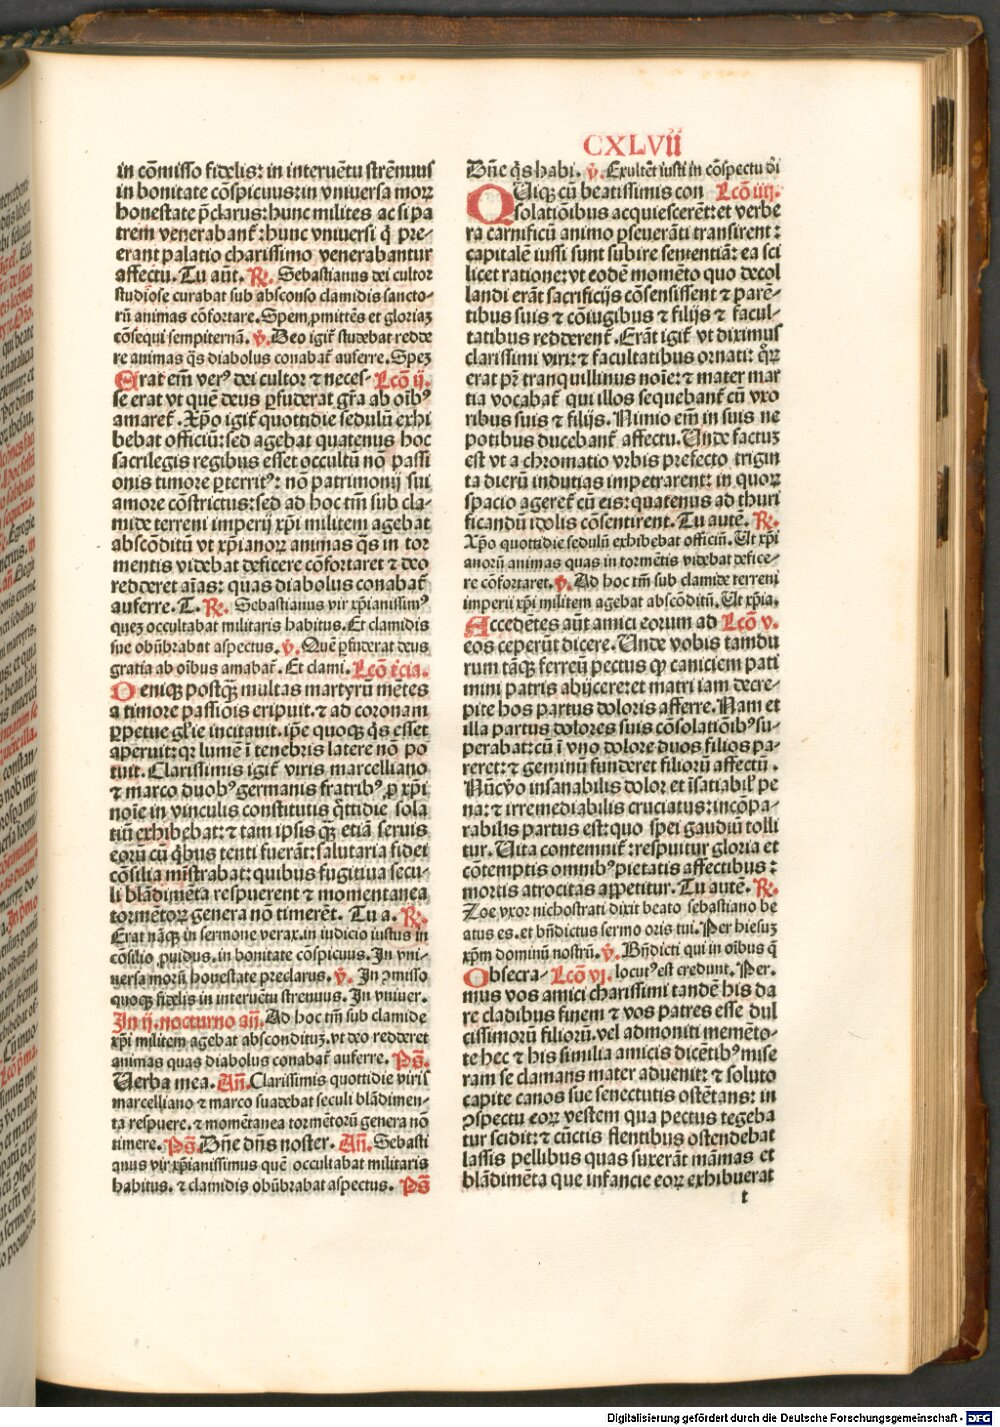 CXLVii
in cōmisso fidelis: in interuētu strēnuus
in bonitate cōspicuus: in vniuersa moꝝ
honestate p̄clarus: hunc milites ac si pa
trem venerabant᷑: hunc vniuersi q̇ pre-
erant palatio charissimo venerabantur
affectu. Tu aūt. R̄. Sebastianus dei cultor
studiose curabat sub absconso clamidis sancto-
rū animas cōfortare. Spem ꝓmittēs et gloriaꝫ
cōsequi sempiternā. v̄. Deo igit᷑ studebat redde
re animas q̄s diabolus conabat᷑ auferre. Speꝫ
Erat em̄ verꝰ dei cultor ⁊ neces- Lcō ij.
se erat vt quē deus ꝑfuderat gr̄a ab oībꝰ
amaret᷑. Xp̄o igit᷑ quottidie sedulū exhi
bebat officiū: sed agebat quatenus hoc
sacrilegis regibus esset occultū nō passi
onis timore ꝑterritꝰ: nō patrimonij sui
amore cōstrictus: sed ad hoc tm̄ sub cla-
mide terreni imperij xp̄i militem agebat
abscōditū vt xp̄ianoꝝ animas q̄s in tor
mentis videbat deficere cōfortaret ⁊ deo
redderet aīas: quas diabolus conabat᷑
auferre. T. R̄. Sebastianus vir xp̄ianissimꝰ
queꝫ occultabat militaris habitus. Et clamidis
sue obūbrabat aspectus. v̄. Quē ꝑfuderat deus
gratia ab oībus amabat᷑. Et clami. Lcō t̄cia.
Deniqꝫ postq̄ꝫ multas martyrū mētes
a timore passiōis eripuit. ⁊ ad coronam
ꝑpetue gl'ie incitauit. ip̄e quoqꝫ q̄s esset
aperuit: qꝛ lumē ī tenebris latere nō po
tuit. Clarissimis igit᷑ viris marcelliano
⁊ marco duobꝰ germanis fratribꝰ ꝓ xp̄i
noīe in vinculis constitutis q̇ttidie sola
tiū exhibebat: ⁊ tam ipsis q̄ꝫ etiā seruis
eorū cū q̇bus tenti fuerāt: salutaria fidei
cōsilia mīstrabat: quibus fugitiua secu-
li blādimēta respuerent ⁊ momentanea
tormētoꝝ genera nō timerēt. Tu a. R̄.
Erat nāqꝫ in sermone verax. in iudicio iustus in
cōsilio ꝓuidus. in bonitate cōspicuus. In vni-
uersa morū honestate preclarus. v̄. In ꝯmisso
quoqꝫ fidelis in interuētu strenuus. In vniuer.
In ij. nocturno an̄. Ad hoc tm̄ sub clamide
xp̄i militem agebat absconditūꝫ. vt deo redderet
animas quas diabolus conabat᷑ auferre. Ps̄.
Uerba mea. An̄. Clarissimis quottidie viris
marcelliano ⁊ marco suadebat seculi blādimen-
ta respuere. ⁊ momētanea tormētorū genera nō
timere. Ps̄. Dn̄e dn̄s noster. An̄. Sebasti
anus vir xp̄ianissimus quē occultabat militaris
habitus. ⁊ clamidis obūbrabat aspectus. Ps̄
Dn̄e q̇s habi. v̄. Exultēt iusti in cōspectu di
QUiqꝫ cū beatissimis con Lcō iiij.
solatiōibus acquiescerēt: et verbe
ra carnificū animo ꝑseuerāti transirent:
capitalē iussi sunt subire sententiā: ea sci
licet ratione: vt eodē momēto quo decol
landi erāt sacrificijs cōsensissent ⁊ parē-
tibus suis ⁊ cōiugibus ⁊ filijs ⁊ facul-
tatibus redderent᷑. Erāt igit᷑ vt diximus
clarissimi viri: ⁊ facultatibus ornati: qͦꝝ
erat pr̄ tranquillinus noīe: ⁊ mater mar
tia vocabat᷑ qui illos sequebant᷑ cū vxo
ribus suis ⁊ filijs. Nimio em̄ in suis ne
potibus ducebant᷑ affectu. Unde factuꝫ
est vt a chromatio vrbis prefecto trigin
ta dierū indutias impetrarent: in quoꝝ
spacio ageret᷑ cū eis: quatenus ad thuri
ficandū idolis cōsentirent. Tu autē. R̄.
Xp̄o quottidie sedulū exhibebat officiū. Ut xp̄i
anorū animas quas in tormētis videbat defice-
re cōfortaret. v̄. Ad hoc tm̄ sub clamide terreni
imperij xp̄i militem agebat abscōditū. Ut xp̄ia.
Accedētes aūt amici eorum ad Lcō v.
eos ceperūt dicere. Unde vobis tamdu
rum tāqꝫ ferreū pectus qꝫ caniciem pati
mini patris abijcere: et matri iam decre-
pite hos partus doloris afferre. Nam et
illa partus dolores suis cōsolatiōibꝰ su-
perabat: cū ī vno dolore duos filios pa-
reret: ⁊ geminū funderet filiorū affectū.
Nūc ꝟo insanabilis dolor et īsatiabil' pe
na: ⁊ irremediabilis cruciatus: incōpa-
rabilis partus est: quo spei gaudiū tolli
tur. Uita contemnit᷑: respuitur gloria et
cōtemptis omnibꝰ pietatis affectibus:
mortis atrocitas appetitur. Tu autē. R̄.
Zoe vxor nichostrati dixit beato sebastiano be
atus es. et bn̄dictus sermo oris tui. Per hiesuꝫ
xp̄m dominū nostrū. v̄. Bn̄dicti qui in oībus q̄
Obsecra- Lcō vj. locutꝰ est credunt. Per.
mus vos amici charissimi tandē his da
re cladibus finem ⁊ vos patres esse dul
cissimorū filiorū. vel admoniti memēto-
te hec ⁊ his similia amicis dicētibꝰ mise
ram se clamans mater aduenit: ⁊ soluto
capite canos sue senectutis ostētans: in
ꝯspectu eoꝝ vestem qua pectus tegeba
tur scidit: ⁊ cūctis flentibus ostendebat
lassis pellibus quas suxerāt māmas et
blādimēta que infancie eoꝝ exhibuerat
t
Digitalisierung gefördert durch die Deutsche Forschungsgemeinschaft - DFG